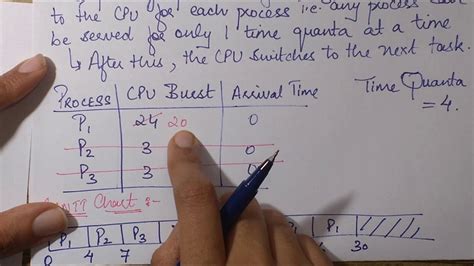 to the CPU for each process i.e. any process can
be served for only 1 time quanta at a time
↳ After this, the CPU switches to the next task.
PROCESS | CPU Burst | Arrival Time Time Quanta
= 4.
P1 24 20 0
P2 3 0
P3 3 0
Chart :-
P1 P2 P3 P1 P1
0 4 7 30